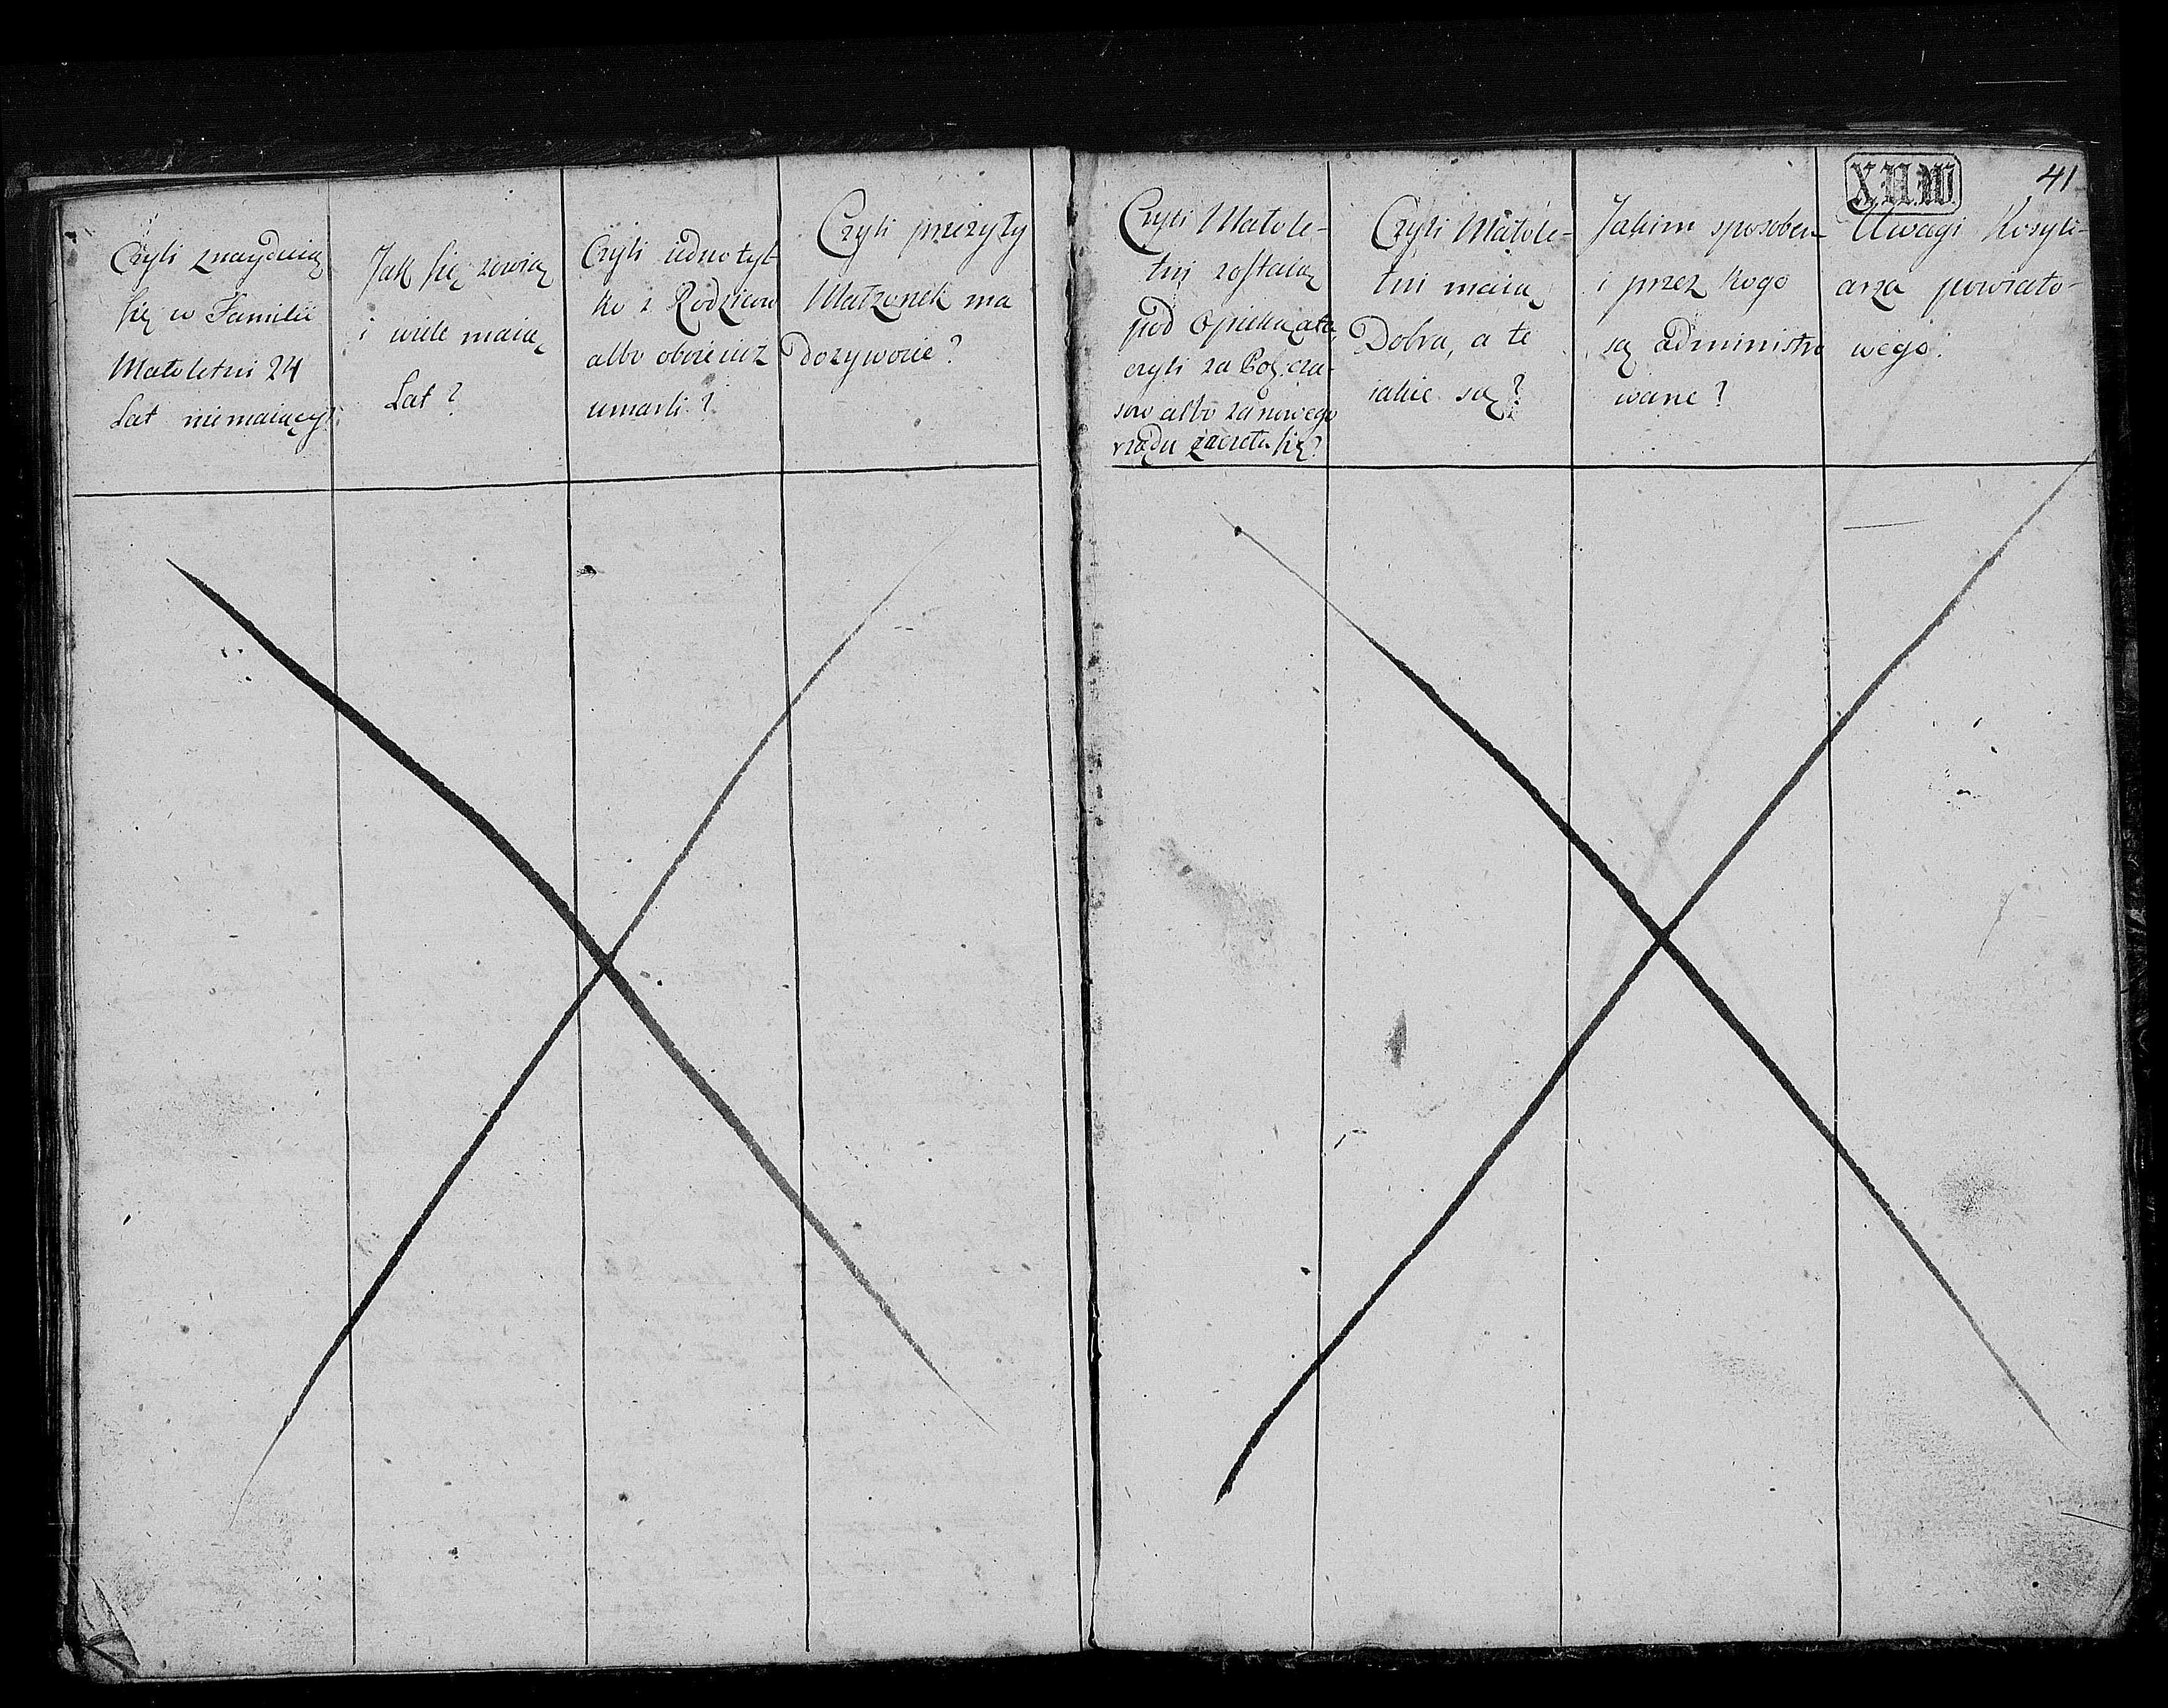 Czyli znayduią
się w Familii
Małoletni 24
Lat niemaiący?
Jak się zowią
i wiele maią
Lat?
Czyli iedno tyl-
ko z Rodziców
albo oboie iuż
umarli?
Czyli przeżyły
Małżonek ma
Dożywocie?
Czyli Małole-
tni zostaią
pod Opieką, a ta
czyli za Pol: cza-
sów albo za nowego
rządu zaczęła się?
Czyli Małole-
tni maią
Dobra, a te
iakie są?
Jakim sposobem
i przez kogo
są administro
wane?
XII.W.
41
Uwagi Konsyli-
arza powiato-
wego.